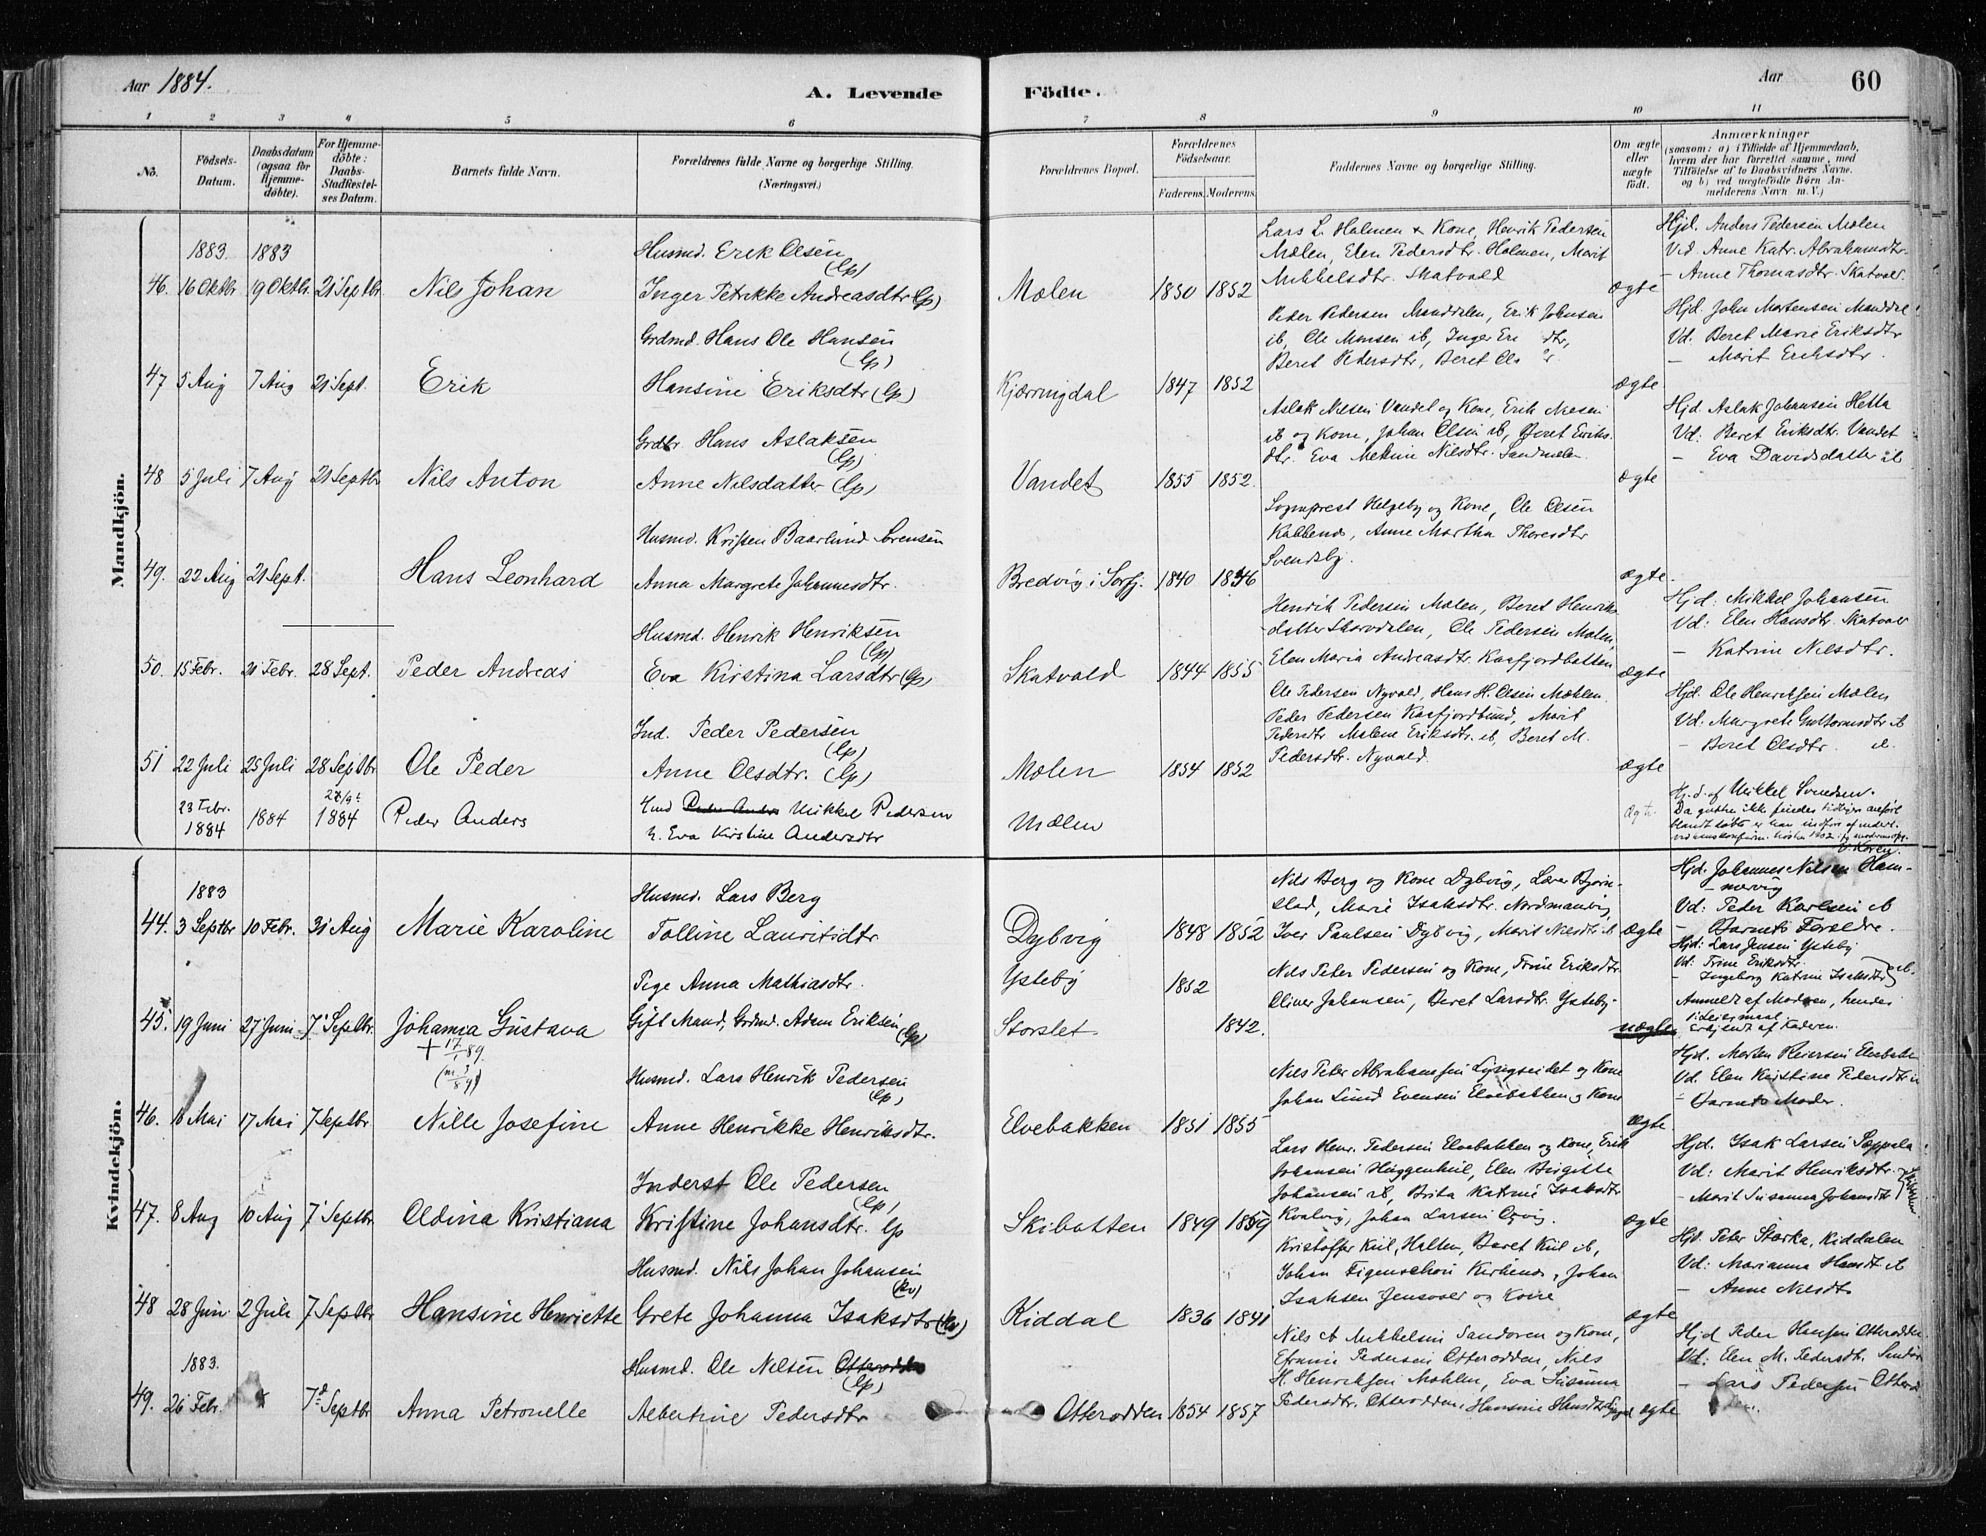 Aar 1884.
A. Levende Födte.
Aar
60
1 2 3 4 5 6 7 8 9 10 11
No.
Fødsels-Datum.
Daabsdatum (ogsaa for Hjemmedøbte).
For Hjemmedøbte: Daabs-Stadfæstelses Datum.
Barnets fulde Navn.
Forældrenes fulde Navne og borgerlige Stilling. (Næringsvei.)
Forældrenes Bopæl.
Forældrenes Fødselsaar.
Faderens. Moderens.
Faddernes Navne og borgerlige Stilling.
Om ægte eller uægte født.
Anmærkninger
(saasom: a) i Tilfælde af Hjemmedaab, hvem der har forrettet samme, med Tilføielse af to Daabsvidners Navne. og b) ved uægtefødte Børn Anmelderens Navn m. V.)
Mandkjön.
1883. 1883
Husmd. Erik Olsen (lp)
46. 16 Oktbr 19 Oktbr. 21 Septbr. Nils Johan
Inger Petrikke Andreasdtr (lp)
Mælen 1850 1852
Lars L. Holmen & Kone, Henrik Pedersen
Mælen, Elen Pedersdtr. Holmen, Marit
Mikkelsdtr. Skatvold
ægte
Hjd. Anders Pedersen Mælen
Vid. Anne Katr. Abrahamsdtr.
– Anne Thomasdtr. Skatvold.
Grdmd. Hans Ole Hansen (lp)
47 5 Aug 7 Aug 21 Sept. Erik
Hansine Eriksdtr (lp)
Kjærringdal 1847 1852
Peder Pedersen Manddalen, Erik Johnsen
ib, Ole Monsen ib, Inger
Beret Pedersdtr, Beret
ægte
Hjd. John Mortensen Manddal
Vd. Beret Marie Eriksdtr
– Marit Eriksdtr.
Grdbr. Hans Aslaksen (lp)
48 5 Juli 7 Aug 21 Septbr Nils Anton
Anne Nilsdatter (lp)
Vandet 1855 1852.
Aslak Nilsen Vandet og Kone, Erik Nilsen
ib og Kone, Johan Olsen ib, Beret Eriks
dtr. Eva Nilsdtr. Sandmelen.
ægte
Hjd. Aslak Johansen Hetta
Vd: Beret Eriksdtr. Vandet
– Eva Davidsdatter ib
Husmd. Kristen Baarlund Sørensen
49. 22 Aug 21 Sept. Hans Leonhard
Anna Margrete Johannesdtr.
Bredvig i Sørfj. 1840 1846
Sogneprest Helgeby og Kone, Ole Olsen
Anne Martha Thoresdtr
Svendsby.
ægte.
Husmd. Henrik Henriksen (lp)
50. 15 Febr. 21 Febr. 28 Sept. Peder Andreas
Eva Kirstina Larsdtr (lp)
Skatvold 1844 1855
Henrik Pedersen Mælen, Beret Henriks
datter Skardalen, Ole Pedersen Mælen,
Elen Maria Andreasdtr. Kaafjordbotten
ægte
Hjd: Mikkel Johansen
Vd: Elen Hansdtr. Skatvold
– Katrine Nilsdtr.
Ind. Peder Pedersen (lp)
51 22 Juli 25 Juli 28 Septbr Ole Peder
Anne Olsdtr. (lp)
Mælen 1854 1852
Ole Pedersen Nyvold, Hans H. Olsen Mæhlen
Peder Pedersen Kaafjordbund, Marit
Pedersdtr Malene Eriksdtr. ib, Beret M.
Pedersdtr. Nyvold.
ægte
Hjd. Ole Henriksen Mælen
Vd: Margrete Guttormsdtr ib
– Beret Olsdtr. ib.
23 Febr. 1884 1884 1884 Peder Anders
Mikkel Pedersen
h. Eva Kirstine Andersdtr
Mælen
Ægte
Hj. d. af Mikkel Svendsen.
Kvindekjön.
1883
Husmd. Lars Berg
44. 3 Septbr 10 Febr. 31 Aug Marie Karoline
Tolline Lauritsdtr.
Dybvig 1848 1852
Nils Berg og Kone Dybvig, Lærer Bjørn-
stad, Marie Isaksdtr. Nordmanvig,
Iver Paulsen Dybvig, Marit Nilsdtr ib
ægte
Hjd. Johannes Nilsen Olam-
mervig
Vd: Peder Karlsen ib
– Barnets Forældre.
Pige Anna Mathiasdtr.
45. 19 Juni 27 Juni 7 Septbr. Johanna Gustava
+ 17/1 89.
Gift Mand, Grdmd. Adam Eriksen (lp)
Ysteby 1852
Storslet 1842.
Nils Peter Pedersen og Kone, Trine Eriksdtr.
Oliver Johansen, Beret Larsdtr. Ysteby.
uægte
Hjd: Lars Jensen Ysteby
Vd: Trine Eriksdtr.
– Ingeborg Katrine Isaksdtr ib.
Anmeldt af Moderen, hendes
1. Leiermaal.
Erkjendt af Faderen.
Husmd. Lars Henrik Pedersen (lp)
46. 11 Mai 17 Mai 7 Septbr Nille Josefine
Anne Henrikke Henriksdtr.
Elvebakken 1851 1855
Nils Peter Abrahamsen Lyngseidet og Kone
Johan Lund Evensen Elvebakken og Kone
ægte
Hjd. Morten Reiersen Elvebakken
Vd. Elen Kirstine Pedersdtr ib
– Barnets Moder.
Inderst Ole Pedersen (lp)
47. 8 Aug 10 Aug 7 Septbr Oldina Kristiana
Kristine Johansdtr. lp
Skibotten 1849 1859
Lars Henr. Pedersen Elvebakken og Kone, Erik
Johansen Elen Birgitte
Johansen ib, Brita Katrine Isaksdtr
Kvalvig, Johan Larsen
ægte
Hjd. Isak Larsen Seppela
Vd: Marit Henriksdtr.
– Marit Susanna Johansdtr
Husmd. Nils Johan Johansen (kv)
48 28 Juni 2 Juli 7 Septbr Hansine Henriette
Grete Johanna Isaksdtr (kv)
Kiddal 1836 1841
Kristoffer Kiil, Halten, Beret Kiil ib,
Johan Figenschou Johan
Isaksen Jensvold og Kone
ægte
Hjd. Peter Stærka, Kiddalen
Vd: Marianna Hansdtr ib
– Anne Nilsdtr
1883.
Husmd. Ole Nilsen Otterodden (lp)
49. 26 Febr. 7de Septbr Anna Petronelle
Albertine Pedersdtr
Otterodden 1854 1857
Nils A. Mikkelsen Sandøren og Kone,
Efraim Pedersen Otterodden, Nils
H. Henriksen Mæhlen, Eva Susanna
Pedersdtr. Otterodden, Hansine Hansdtr
ægte
Hjd Peder Hansen Otterodden
Vd: Elen M. Pedersdtr.
– Lars Pedersen